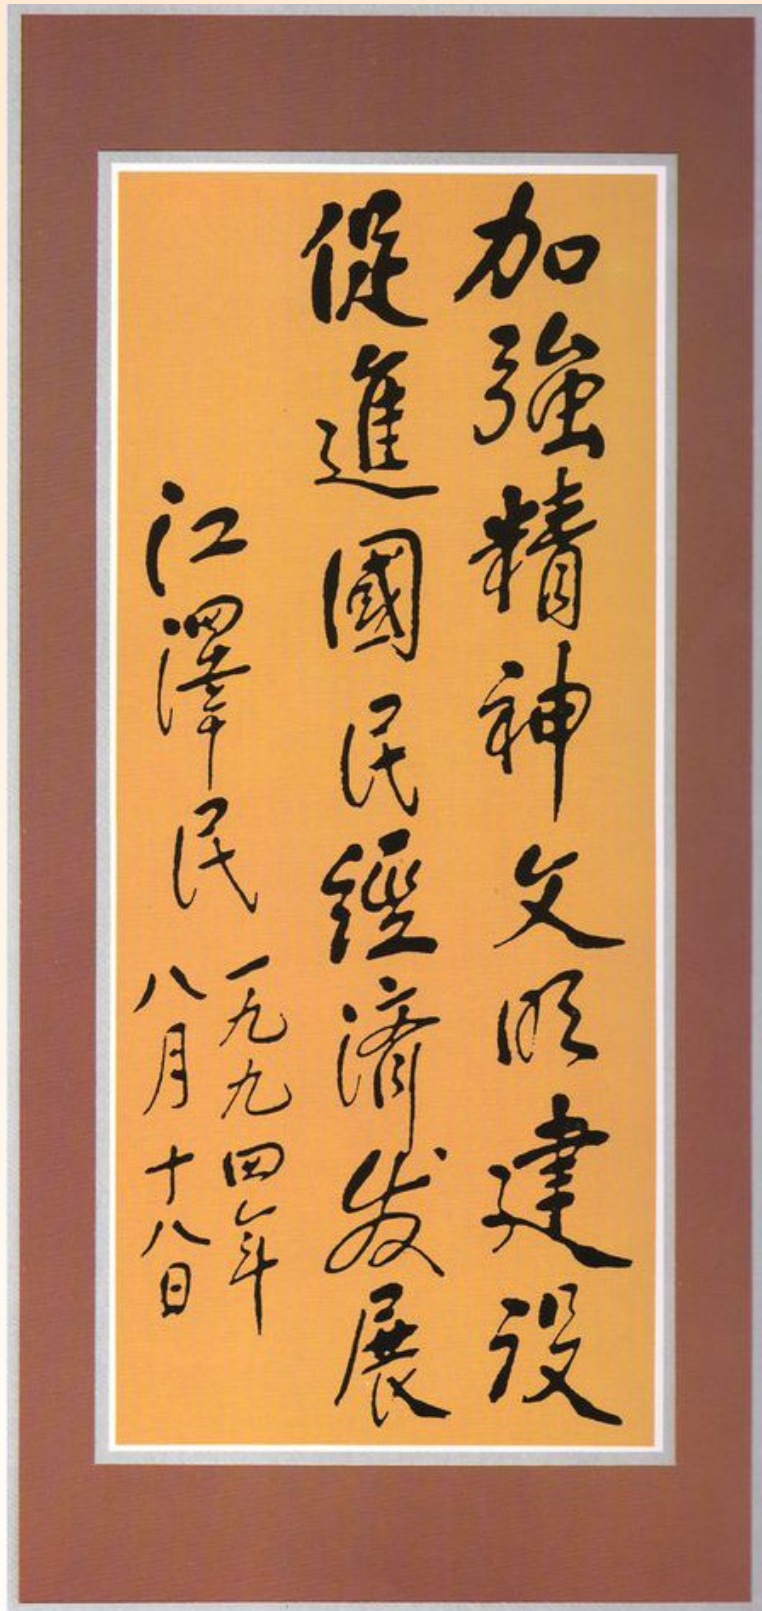 加強精神文明建设
促進國民經濟发展
江澤民
一九九四年
八月十八日